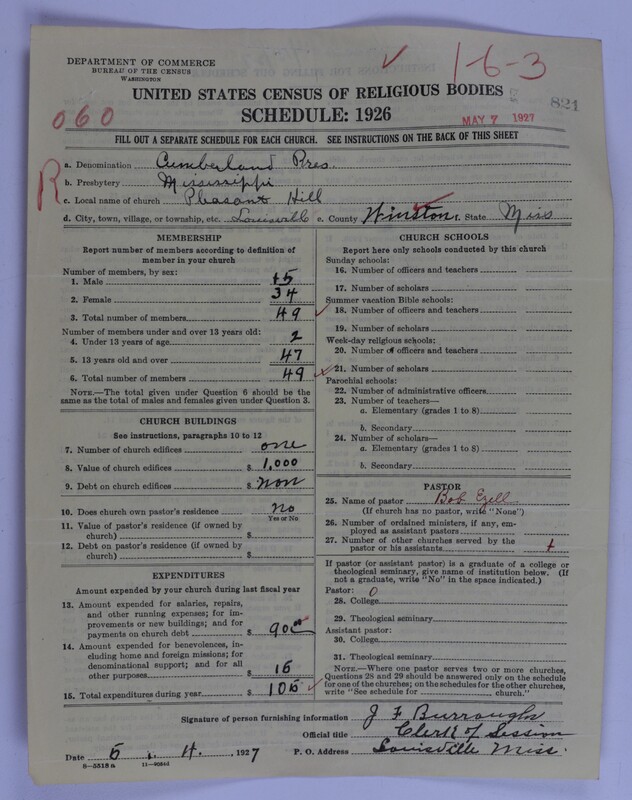 DEPARTMENT OF COMMERCE
BUREAU OF THE CENSUS
WASHINGTON
1-6-3
UNITED STATES CENSUS OF RELIGIOUS BODIES
SCHEDULE: 1926
060
MAY 7 1927
821
FILL OUT A SEPARATE SCHEDULE FOR EACH CHURCH. SEE INSTRUCTIONS ON THE BACK OF THIS SHEET
R
a. Denomination Cumberland Pres.
b. Presbytery Mississippi
c. Local name of church Pleasant Hill
d. City, town, village, or township, etc. Louisville e. County Winston f. State Miss
MEMBERSHIP
Report number of members according to definition of member in your church
Number of members, by sex:
1. Male 15
2. Female 34
3. Total number of members 49
Number of members under and over 13 years old:
4. Under 13 years of age 2
5. 13 years old and over 47
6. Total number of members 49
NOTE.—The total given under Question 6 should be the same as the total of males and females given under Question 3.
CHURCH BUILDINGS
See instructions, paragraphs 10 to 12
7. Number of church edifices one
8. Value of church edifices $ 1,000
9. Debt on church edifices $ non
10. Does church own pastor's residence No
Yes or No
11. Value of pastor's residence (if owned by church) $
12. Debt on pastor's residence (if owned by church) $
EXPENDITURES
Amount expended by your church during last fiscal year
13. Amount expended for salaries, repairs, and other running expenses; for improvements or new buildings; and for payments on church debt $
14. Amount expended for benevolences, including home and foreign missions; for denominational support; and for all other purposes $ 15
15. Total expenditures during year $ 105
CHURCH SCHOOLS
Report here only schools conducted by this church
Sunday schools:
16. Number of officers and teachers
17. Number of scholars
Summer vacation Bible schools:
18. Number of officers and teachers
19. Number of scholars
Week-day religious schools:
20. Number of officers and teachers
21. Number of scholars
Parochial schools:
22. Number of administrative officers
23. Number of teachers—
a. Elementary (grades 1 to 8)
b. Secondary
24. Number of scholars—
a. Elementary (grades 1 to 8)
b. Secondary
PASTOR
25. Name of pastor Bob Ezell
(If church has no pastor, write "None")
26. Number of ordained ministers, if any, employed as assistant pastors
27. Number of other churches served by the pastor or his assistants
If pastor (or assistant pastor) is a graduate of a college or theological seminary, give name of institution below. (If not a graduate, write "No" in the space indicated.)
Pastor: 0
28. College
29. Theological seminary
Assistant pastor:
30. College
31. Theological seminary
NOTE.—Where one pastor serves two or more churches, Questions 28 and 29 should be answered only on the schedule for one of the churches; on the schedules for the other churches, write "See schedule for church."
Signature of person furnishing information J F Burroughs
Official title Clerk of Session
Date 5 4 1927 P. O. Address Louisville Miss.
8—5318 a